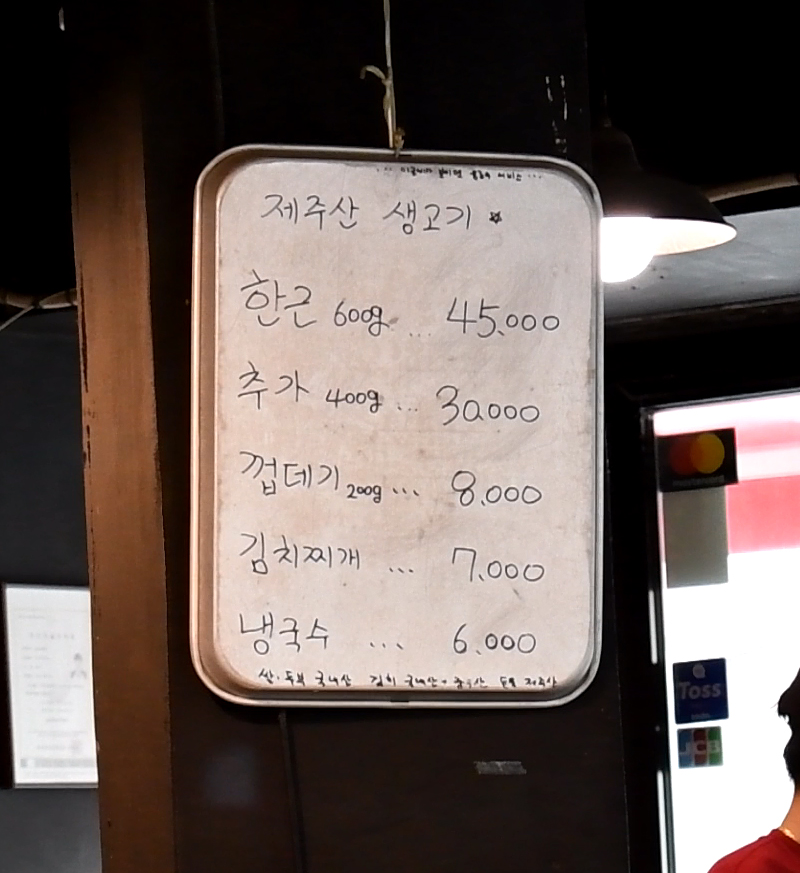 제주산 생고기
한근 600g ... 45.000
추가 400g ... 30.000
껍데기 200g ... 8.000
김치찌개 ... 7.000
냉국수 ... 6.000
쌀·두부 국내산 김치 국내산 제주산
mastercard
Toss
JCB